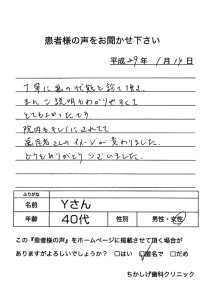 患者様の声をお聞かせ下さい
平成29年 1月14日
丁寧に歯の状態を診て頂き、
また ご説明もわかりやすくて
とてもよかったです
院内もキレイにされてて
歯医者さんのイメージが変わりました。
どうもありがとうございました。
ふりがな
名前 Yさん
年齢 40代 性別 男性・女性
この『患者様の声』をホームページに掲載させて頂く場合が
ありますがよろしいでしょうか? □はい ☑匿名で □だめ
ちかしげ歯科クリニック